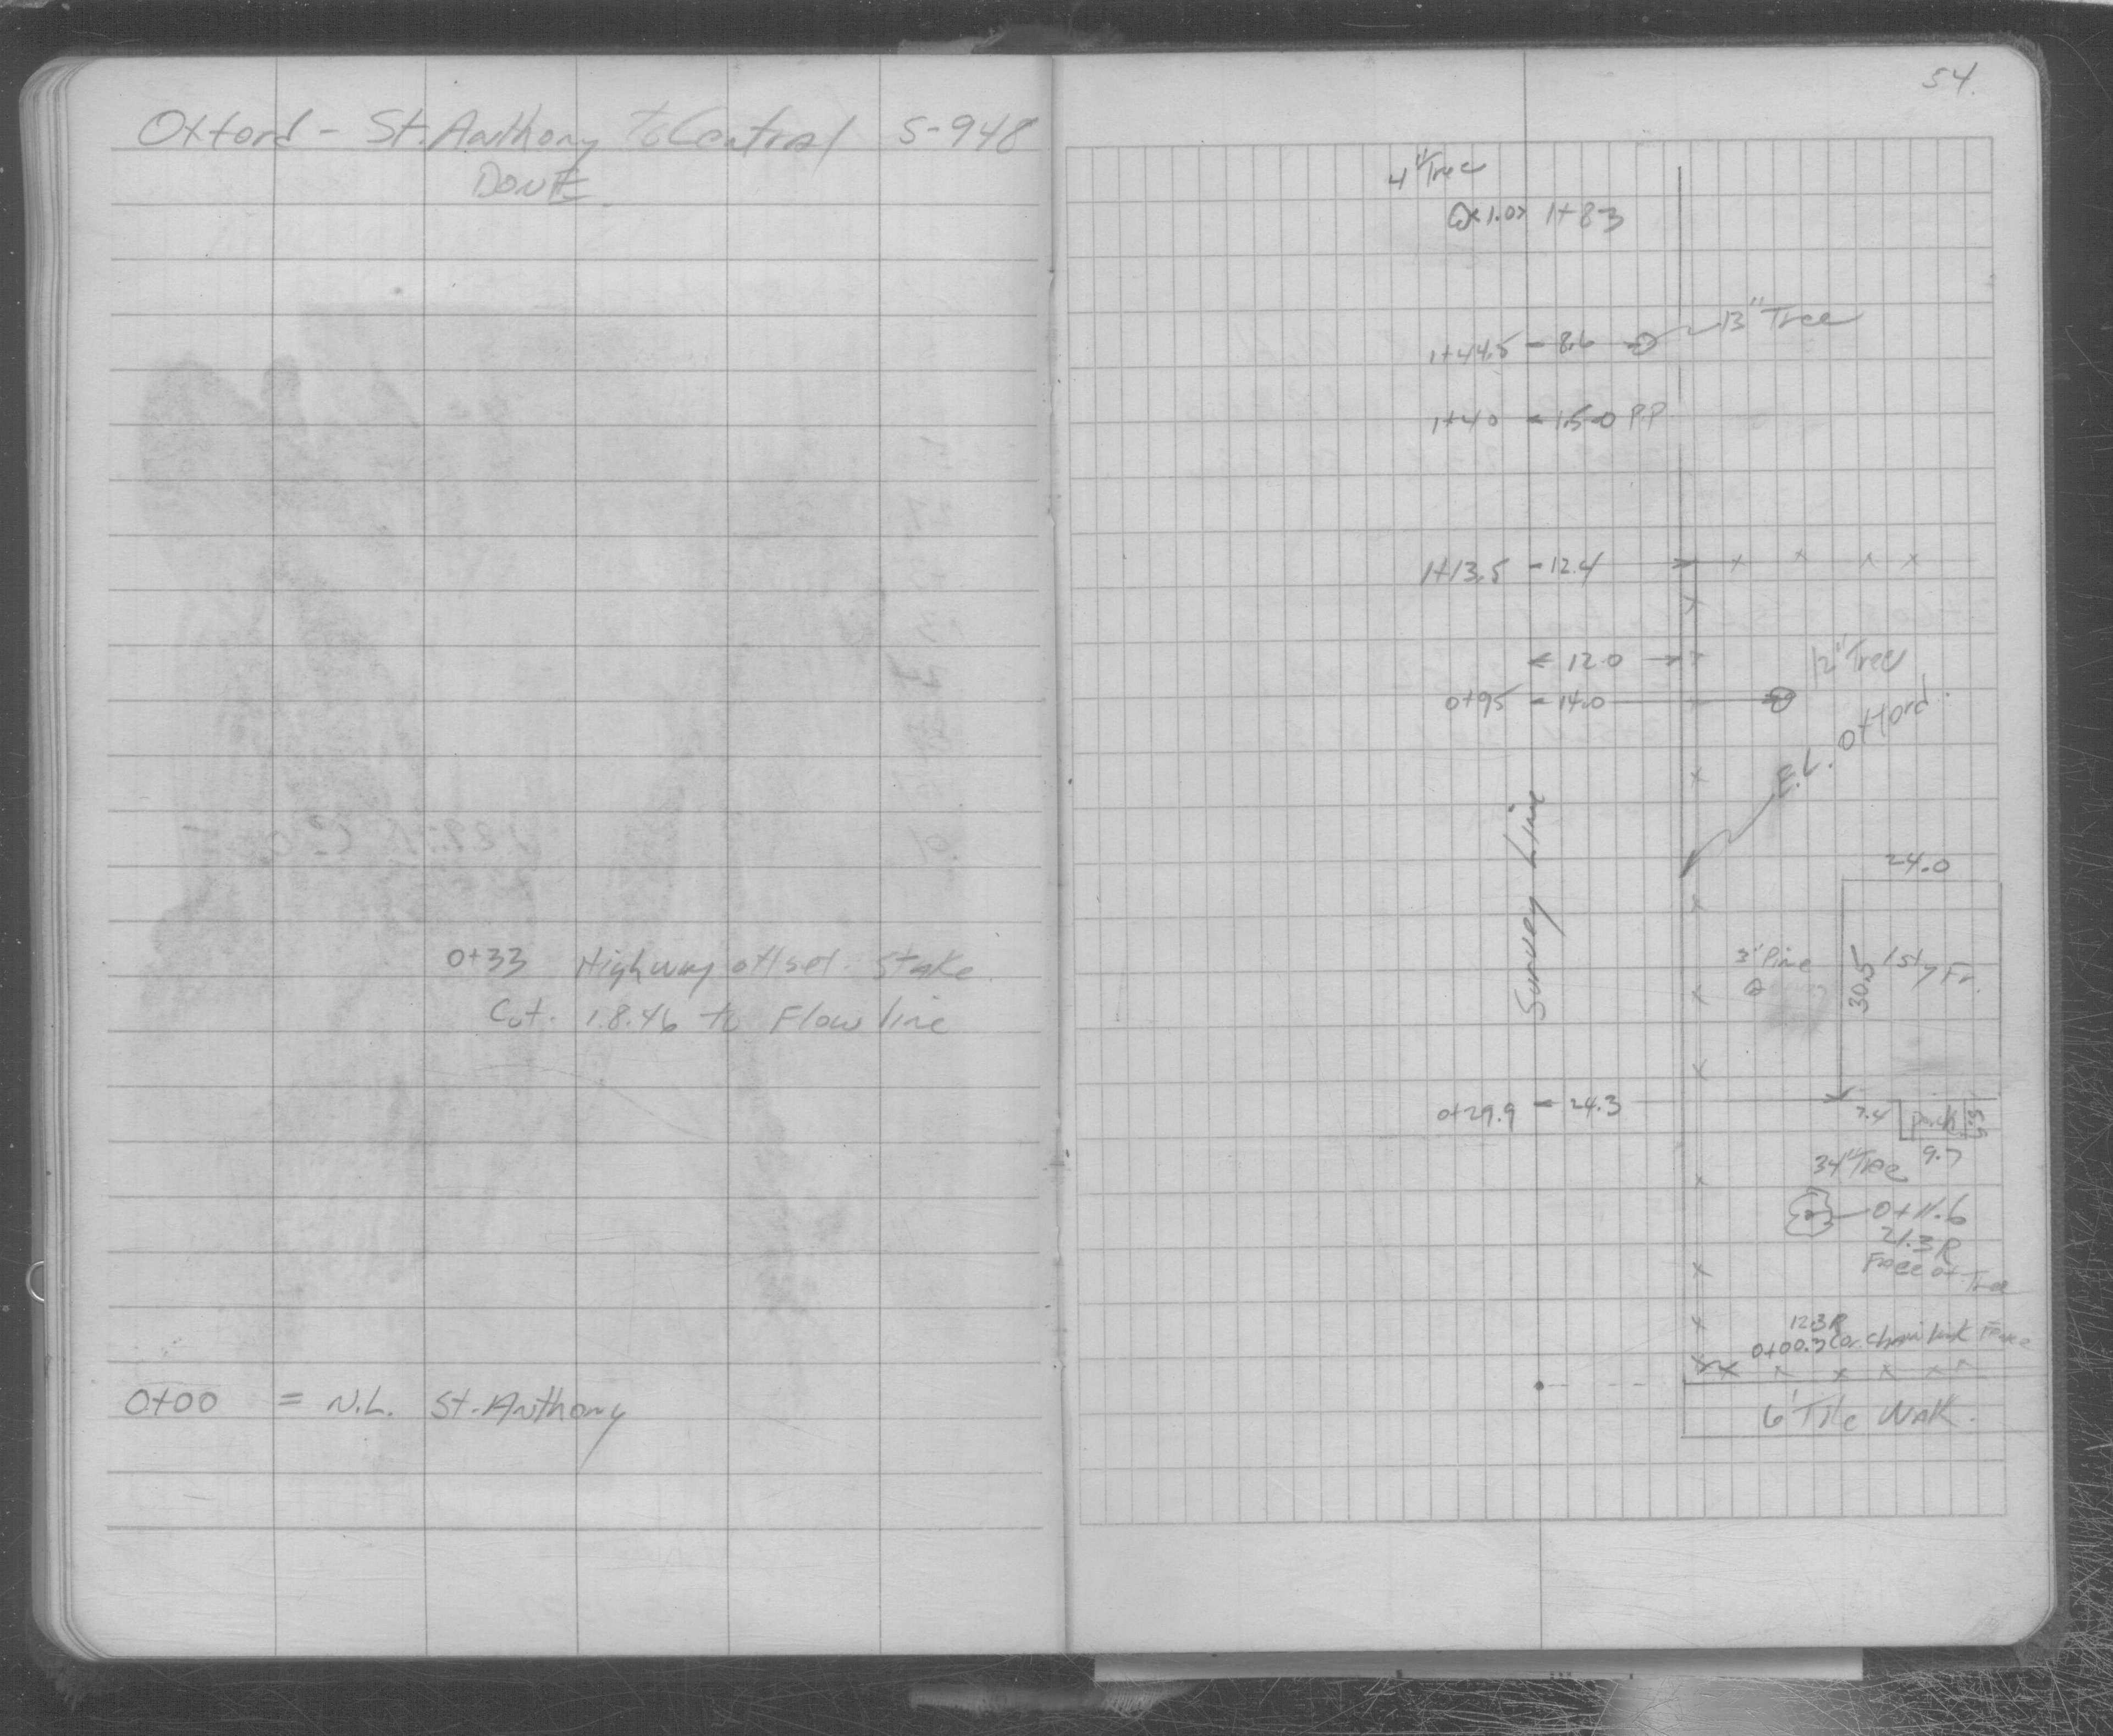 Oxford - St. Anthony to Central S-948
DONE
0+33 Highway offset. Stake
Cut. 18.46 to Flow line
0+00 = N.L. St. Anthony
54.
4" Tree
1.0 1+83
13" Tree
1+44.5 - 8.6
1+40 - 1.5 P.P
1+13.5 - 12.4
12.0
12" Tree
0+95 - 14.0
E.L. Oxford.
Survey Line
24.0
3" Pine
30.5
1 Sty Fr.
0+29.9 - 24.3
7.4
porch
9.7
34" Tree
0+11.6
21.3 R
Face of Tree
12.3 R
0+00.3 Cor. Chain link Fence
6' Tile Walk.